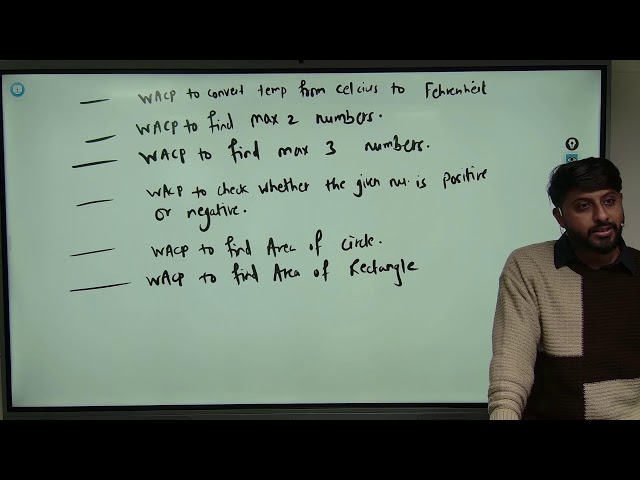 WACP to convert temp from celcius to Fehrenheit
WACP to find max 2 numbers.
WACP to find max 3 numbers.
WACP to check whether the given nu. is positive
or negative.
WACP to find Area of circle.
WACP to find Area of Rectangle